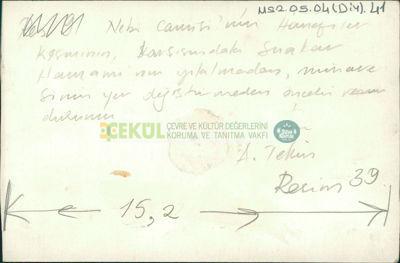 MS2.05.04(DİY).41
Nebi Camisi'nin Hanefiler
kısmının, karşısındaki
Hamamı'nın yıkılmadan, minare
sinin yer değiştirmeden önceki
durumu
ÇEKÜL
ÇEVRE VE KÜLTÜR DEĞERLERİNİ
KORUMA VE TANITMA VAKFI
A. Tekin
Resim 39
15,2